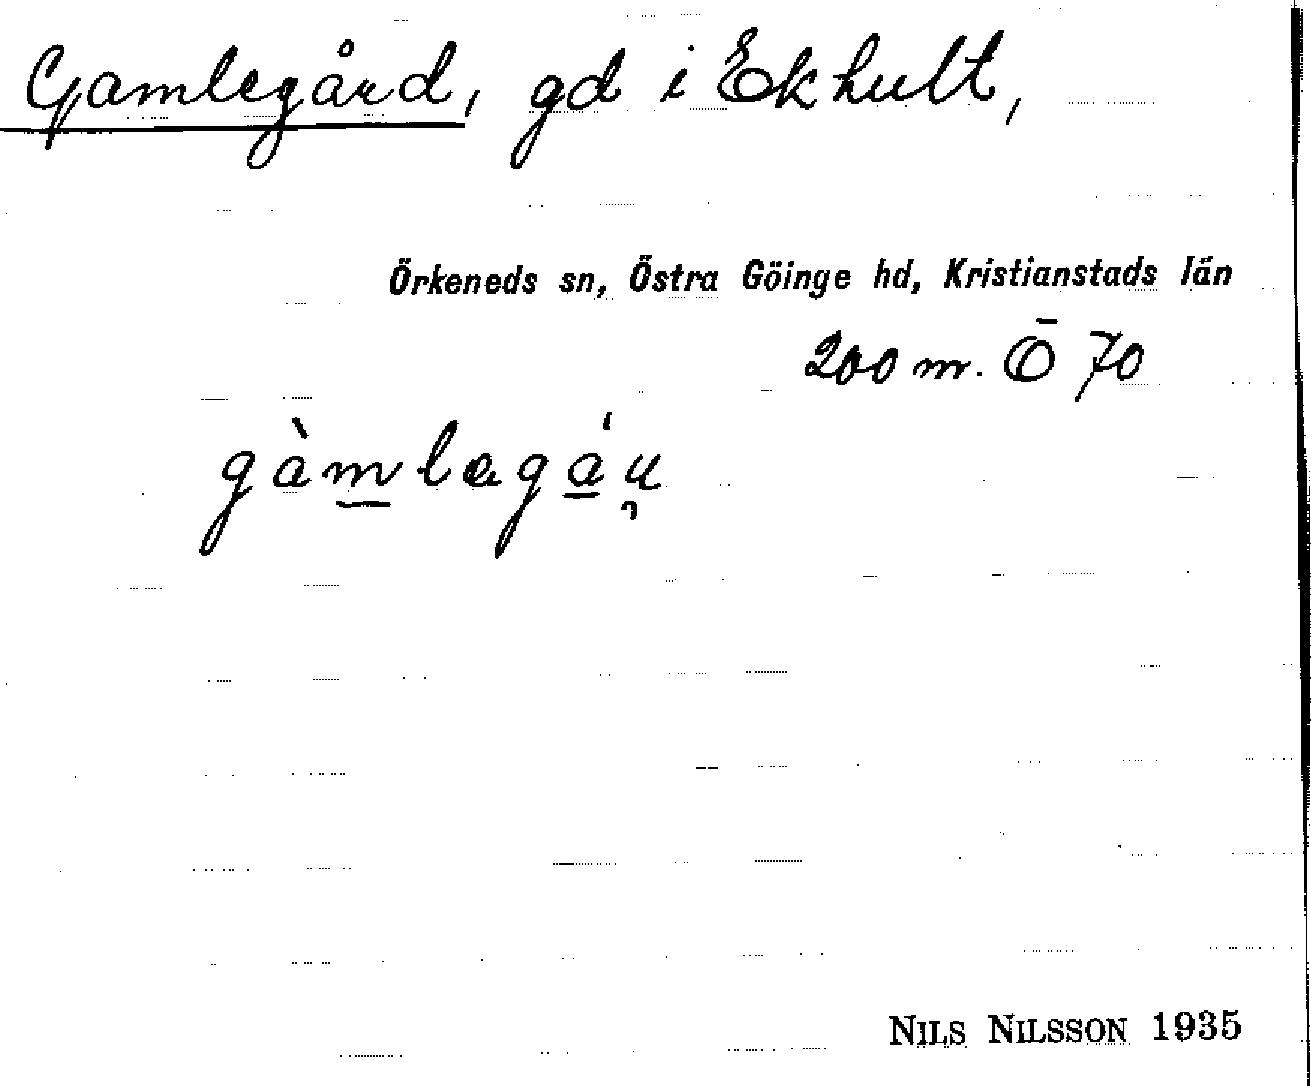 Gamlegård, gd i Ekhult,
Örkeneds sn, Östra Göinge hd, Kristianstads län
200 m. Ö 70
NILS NILSSON 1935